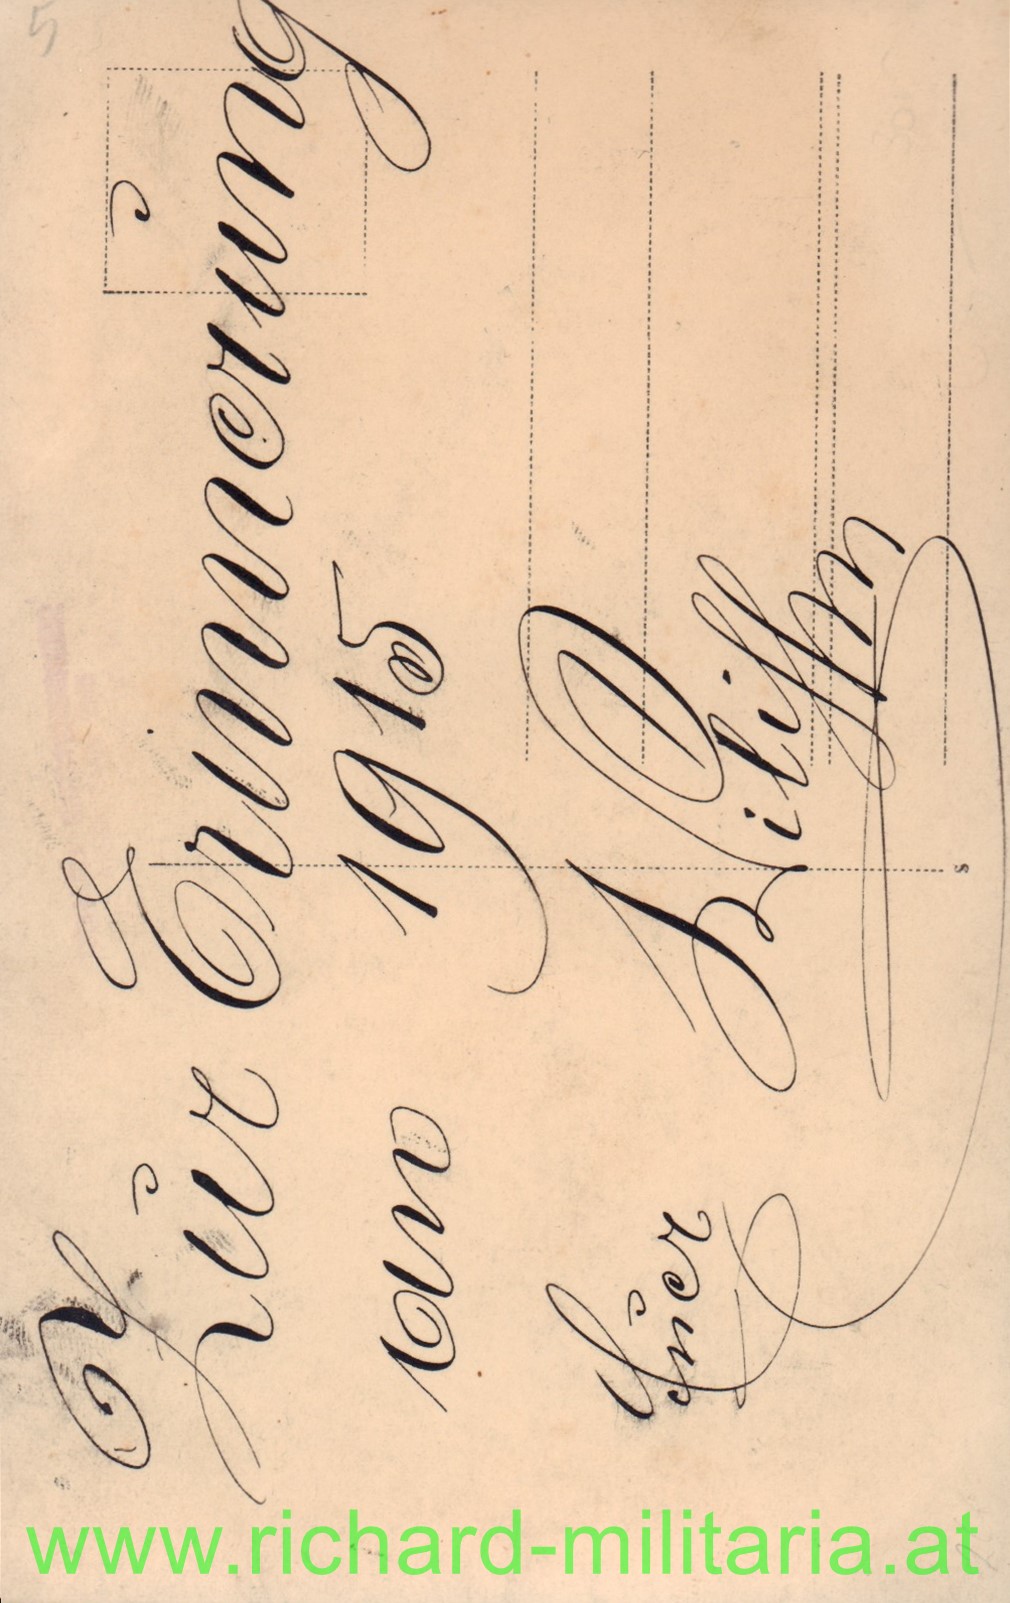 5
Zur Erinnerung
an 1915
Euer
s
www.richard-militaria.at